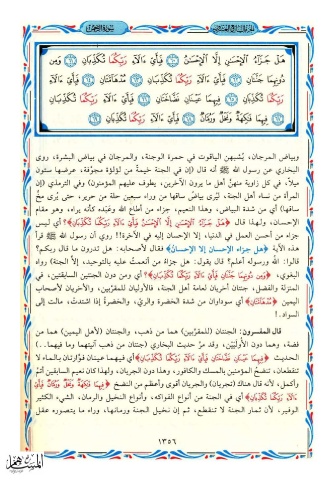 سورة الرحمن
هَلْ جَزَآءُ ٱلْإِحْسَٰنِ إِلَّا ٱلْإِحْسَٰنُ ٦٠ فَبِأَيِّ ءَالَآءِ رَبِّكُمَا تُكَذِّبَانِ ٦١ وَمِن
دُونِهِمَا جَنَّتَانِ ٦٢ فَبِأَيِّ ءَالَآءِ رَبِّكُمَا تُكَذِّبَانِ ٦٣ مُدْهَآمَّتَانِ ٦٤ فَبِأَيِّ ءَالَآءِ
رَبِّكُمَا تُكَذِّبَانِ ٦٥ فِيهِمَا عَيْنَانِ نَضَّاخَتَانِ ٦٦ فَبِأَيِّ ءَالَآءِ رَبِّكُمَا تُكَذِّبَانِ ٦٧
فِيهِمَا فَٰكِهَةٌ وَنَخْلٌ وَرُمَّانٌ ٦٨ فَبِأَيِّ ءَالَآءِ رَبِّكُمَا تُكَذِّبَانِ ٦٩
وبياض المرجان، يُشبهن الياقوت في حمرة الوجنة، والمرجان في بياض البشرة، روى
البخاري عن رسول الله ﷺ أنه قال (إن في الجنة خيمةً من لؤلؤة مجوّفة، عرضها ستون
ميلاً، في كل زاوية منها أهل ما يرون الآخرين، يطوف عليهم المؤمنون) وفي الترمذي (إن
المرأة من نساء أهل الجنة، ليُرى بياضُ ساقها من وراء سبعين حلة من حرير، حتى يُرى مخُّ
ساقها) أي من شدة البياض، وهذا النعيم، جزاء من أطاع الله وعَبَده كأنه يراه، وهو مقام
الإحسان، ولهذا قال ﴿هَلْ جَزَآءُ ٱلْإِحْسَٰنِ إِلَّا ٱلْإِحْسَٰنُ فَبِأَيِّ ءَالَآءِ رَبِّكُمَا تُكَذِّبَانِ﴾؟ أي ليس
جزاء من أحسن العمل في الدنيا، إلا الإحسان إليه في الآخرة!! روي أن رسول الله ﷺ قرأ
هذه الآية ﴿هل جزاء الإحسان إلا الإحسان﴾ فقال لأصحابه: هل تدرون ما قال ربكم؟
قالوا: الله ورسوله أعلم؟ قال يقول: هل جزاءُ من أنعمتُ عليه بالتوحيد، إلا الجنة) رواه
البغوي، ﴿وَمِن دُونِهِمَا جَنَّتَانِ فَبِأَيِّ ءَالَآءِ رَبِّكُمَا تُكَذِّبَانِ﴾؟ أي ومن دون الجنتين السابقتين، في
المنزلة والفضل، جنتان أخريان لعامة أهل الجنة، فالأوليان للمقرّبين، والأخريان لأصحاب
اليمين ﴿مُدْهَآمَّتَانِ﴾ أي سوداوان من شدة الخضرة والريّ، والخضرةُ إذا اشتدت، مالت إلى
السواد.!
قال المفسرون: الجنتان (للمقرّبين) هما من ذهب، والجنتان (لأهل اليمين) هما من
فضة، وهما دون الأُوليَيْن، وقد مرَّ حديث البخاري (جنتان من ذهب آنيتهما وما فيهما..)
الحديث ﴿فِيهِمَا عَيْنَانِ نَضَّاخَتَانِ فَبِأَيِّ ءَالَآءِ رَبِّكُمَا تُكَذِّبَانِ﴾؟ أي فيهما عينان فوّارتان بالماء لا
تنقطعان، تنضخُ المؤمنين بالمسك والكافور، وهذا دون الجريان، ولهذا كان نعيم السابقين أتمَّ
وأكمل، لأنه قال هناك (تجريان) والجريان أقوى وأعظم من النضخ ﴿فِيهِمَا فَٰكِهَةٌ وَنَخْلٌ وَرُمَّانٌ فَبِأَيِّ
ءَالَآءِ رَبِّكُمَا تُكَذِّبَانِ﴾؟ أي في الجنتين من أنواع الفواكه، وأنواع النخيل والرمان، الشيء الكثير
الوفير، لأن ثمار الجنة لا تنقطع، ثم إن نخيل الجنة ورمانها، وراء ما يتصوره عقل
١٣٥٦